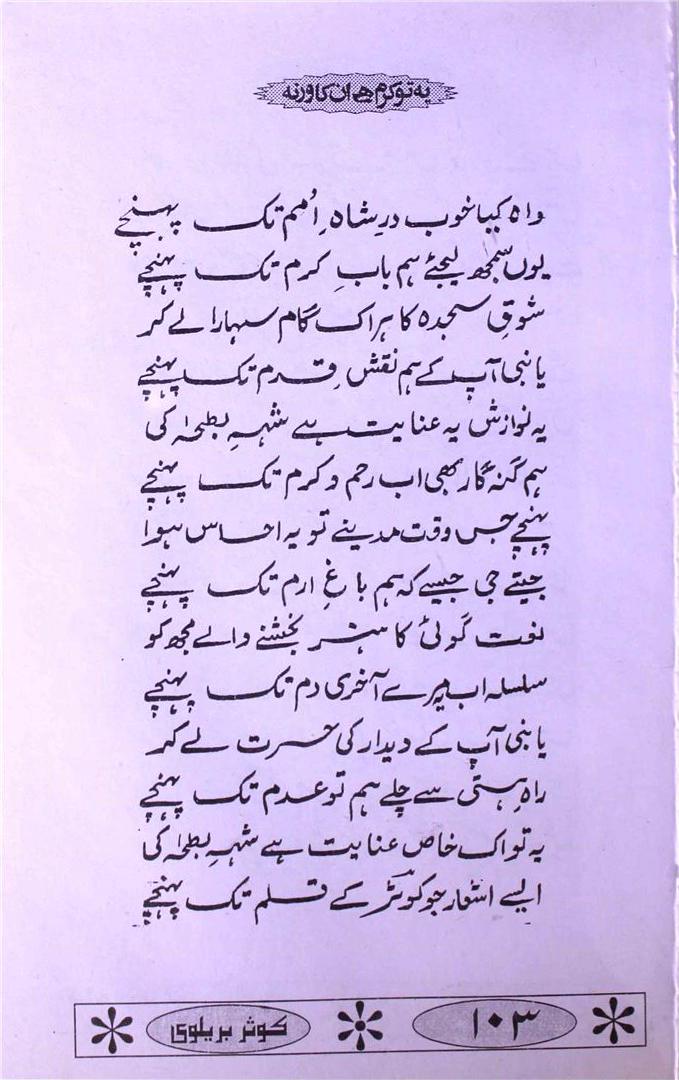 یہ تو کرم ہے ان کا ورنہ
واہ کیا خوب درِ شاہِ اُمم تک پہنچے
یوں سمجھ لیجئے ہم بابِ کرم تک پہنچے
شوقِ سجدہ کا ہر اک گام سہارا لے کر
یا نبی آپ کے ہم نقشِ قدم تک پہنچے
یہ نوازش یہ عنایت ہے شہہِ بطحٰہ کی
ہم گنہ گار بھی اب رحم و کرم تک پہنچے
پہنچے جس وقت مدینے تو یہ احساس ہوا
جیتے جی جیسے کہ ہم باغِ ارم تک پہنچے
نعت گوئی کا ہنر بخشنے والے مجھ کو
سلسلہ اب میرے آخری دم تک پہنچے
یا نبی آپ کے دیدار کی حسرت لے کر
راہِ ہستی سے چلے ہم تو عدم تک پہنچے
یہ تو اک خاص عنایت ہے شہہِ بطحٰہ کی
ایسے اشعار جو کوثرؔ کے قلم تک پہنچے
۱۰۳
کوثر بریلوی